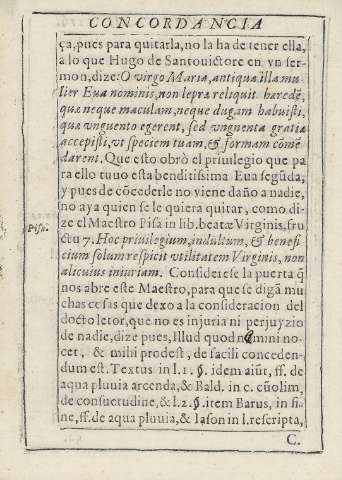 CONCORDANCIA
ça, pues para quitarla, no la ha de tener ella,
a lo que Hugo de Santouictore en vn ser-
mon, dize: O virgo Maria, antiquæ illa mu-
lier Eua nominis, non lepræ reliquit hæredē,
quæ neque maculam, neque dugam habuisti,
quæ vnguento egerent, sed vnguenta gratiæ
accepisti, vt speciem tuam, & formam cōmē
darent. Que esto obrò el priuilegio que pa
ra ello tuuo esta benditissima Eua segūda,
y pues de cōcederle no viene daño a nadie,
no aya quien se le quiera quitar, como di-
ze el Maestro Pisa in lib. beatæ Virginis, fru
Pisa.
ctu 7. Hoc priuilegium, indultum, & benefi
cium solum respicit vtilitatem Virginis, non
alicuius iniuriam. Considerese la puerta q̄
nos abre este Maestro, para que se digā mu
chas cosas que dexo a la consideracion del
docto letor, que no es injuria ni perjuyzio
de nadie, dize pues, Illud quod nemini no-
cet, & mihi prodest, de facili conceden-
dum est. Textus in l. 1. §. idem aiūt, ff. de
aqua pluuia arcenda, & Bald. in c. cū olim,
de consuetudine, & l. 2. §. item Barus, in fi-
ne, ff. de aqua pluuia, & Iason in l. rescripta,
C.